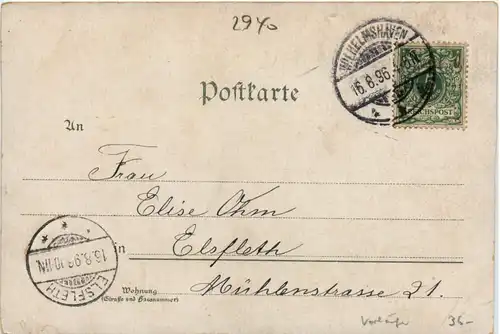 2940
WILHELMSHAVEN
16.8.96
REICHSPOST
Postkarte
An
Frau
Elise Ohm
in Elsfleth
ELSFLETH
16.8.96.10-11N
Wohnung
(Straße und Hausnummer)
Mühlenstrasse 21.
Vorläufer
36.-